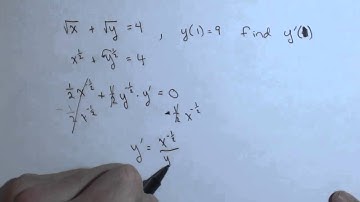 √x + √y = 4 , y(1) = 9 find y'(1)
x^½ + y^½ = 4
½ x^-½ + ½ y^-½ · y' = 0
-½ x^-½ -½ x^-½
y' = x^-½ / y